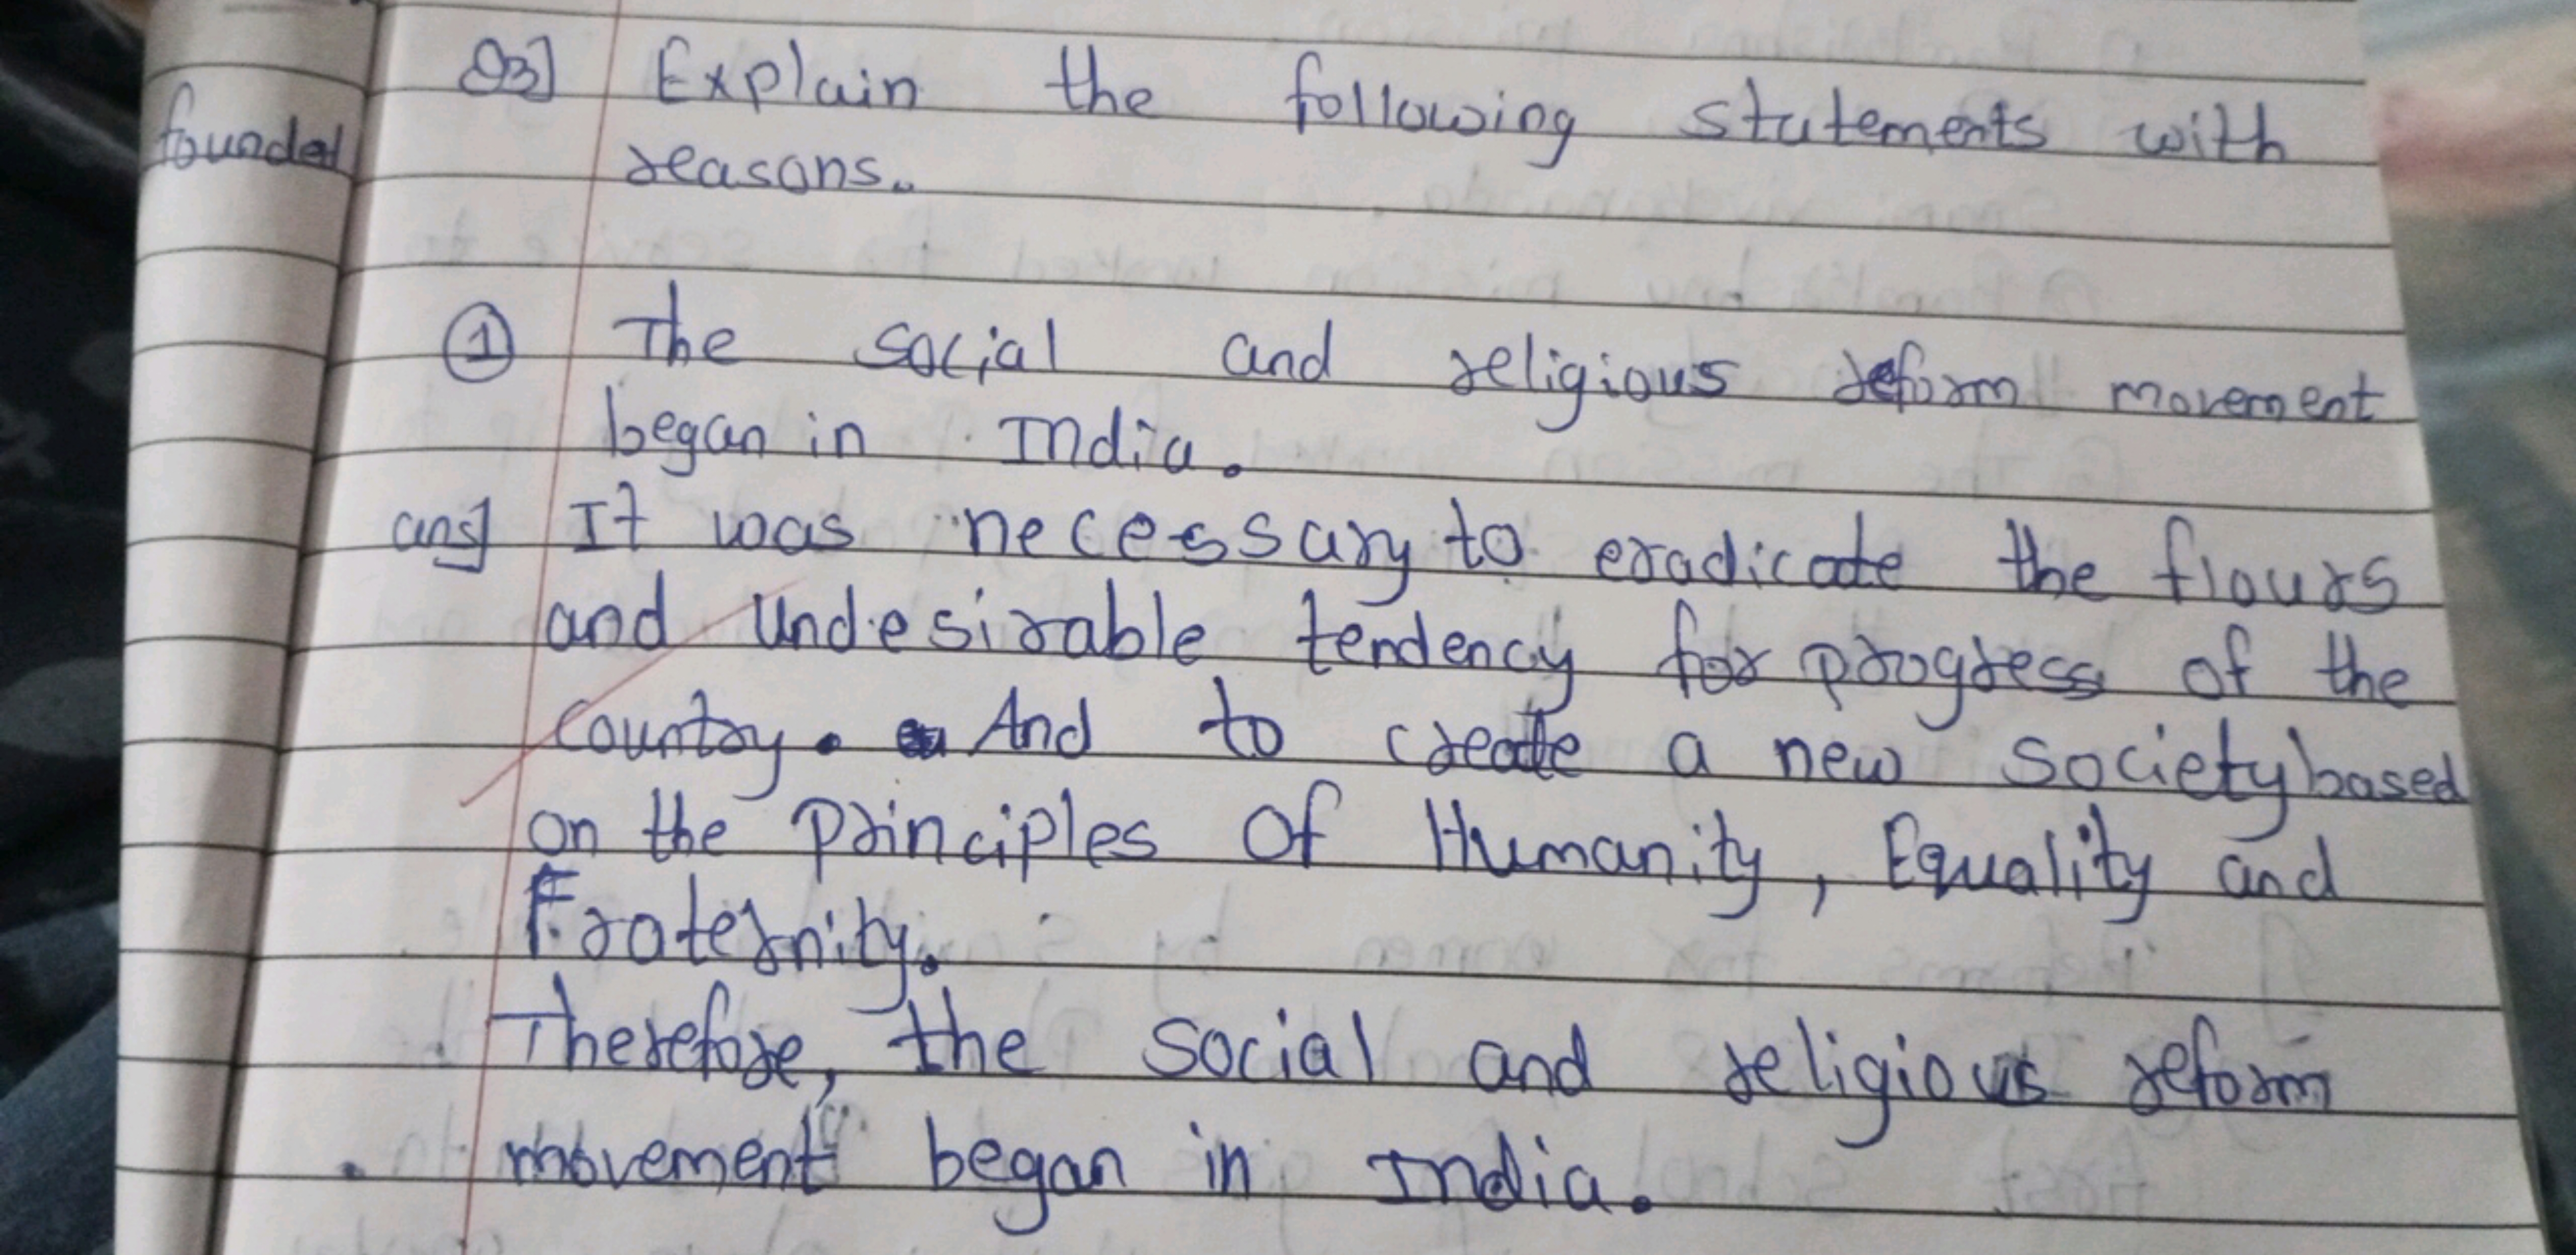 founded
Q3] Explain the following statements with
reasons.
① The social and religious reform movement
began in India.
ans] It was necessary to eradicate the flours
and undesirable tendency for progress of the
country. And to create a new society based
on the principles of Humanity, Equality and
Fraternity.
Therefore, the social and religious reform
movement began in India.